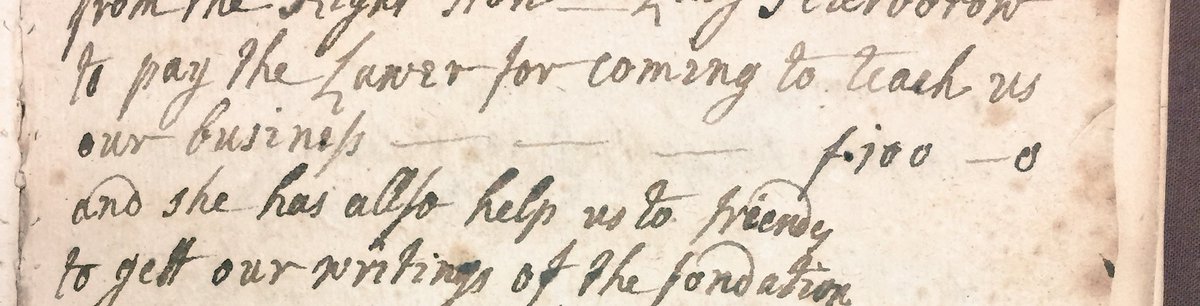 from the Right Hon — Lady Peterborow
to pay the Lawer for coming to teach us
our business — — — f·100 — 0
and she has allso help us to friends
to gett our writings of the fondation